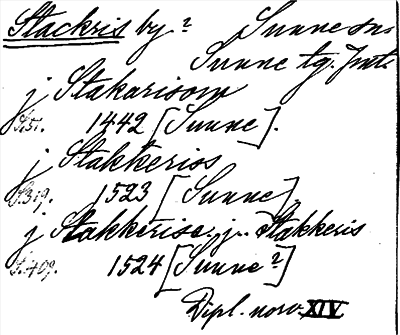 Stackris by? Sunne sn.
Sunne tg. Jmtl.
j Stakarisom
S. 51. 1442 [Sunne].
j Stakkeriss
S. 319. 1523 [Sunne]
j Stakkerise, j.. Stakkeris
S. 409. 1524 [Sunne?]
Dipl. norv. XIV